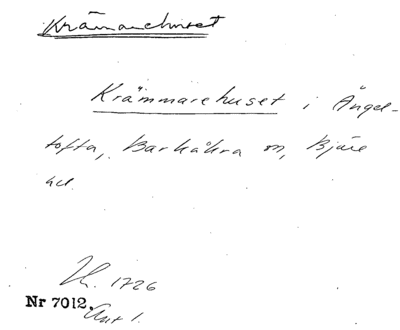 Krämarehuset
Krämmarehuset i Ängel-
tofta, Barkåkra sn, Bjäre
hd.
1726
Nr 7012.